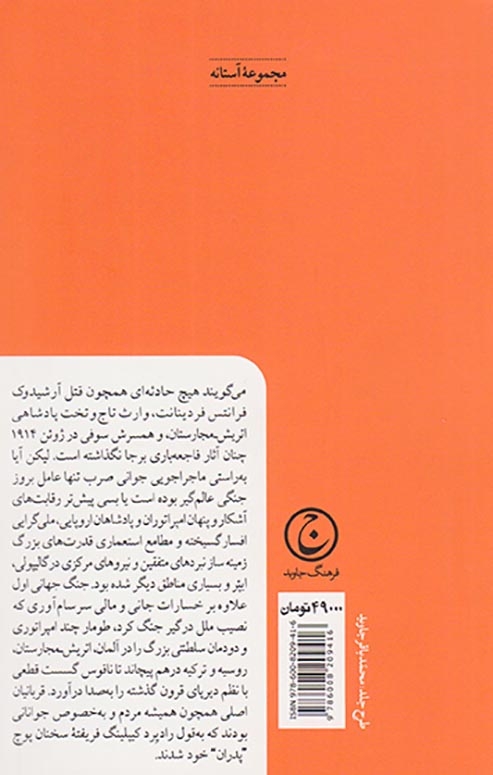 مجموعهٔ آستانه
می‌گویند هیچ حادثه‌ای همچون قتل آرشیدوک
فرانتس فردینانت، وارث تاج و تخت پادشاهی
اتریش‌ـ‌مجارستان، و همسرش سوفی در ژوئن ۱۹۱۴
چنان آثار فاجعه‌باری برجا نگذاشته است. لیکن آیا
به‌راستی ماجراجویی جوانی صرب تنها عامل بروز
جنگی عالم‌گیر بوده است یا بسی پیش‌تر رقابت‌های
آشکار و پنهان امپراتوران و پادشاهان اروپایی، ملی‌گرایی
افسارگسیخته و مطامع استعماری قدرت‌های بزرگ
زمینه ساز نبردهای متفقین و نیروهای مرکزی در گالیپولی،
ایپر و بسیاری مناطق دیگر شده بود. جنگ جهانی اول
علاوه بر خسارات جانی و مالی سرسام‌آوری که
نصیب ملل درگیر جنگ کرد، طومار چند امپراتوری
و دودمان سلطنتی بزرگ را در آلمان، اتریش‌ـ‌مجارستان،
روسیه و ترکیه درهم پیچاند تا ناقوس گسست قطعی
با نظم دیرپای قرون گذشته را به‌صدا درآورد. قربانیان
اصلی همچون همیشه مردم و به‌خصوص جوانانی
بودند که به‌قول رادیرد کیپلینگ فریفتهٔ سخنان پوچ
"پدران" خود شدند.
ج
فرهنگ جاوید
۴۹۰۰۰ تومان
ISBN 978-600-8209-41-6
9 786008 209416
طرح جلد: محمدباقر جاوید